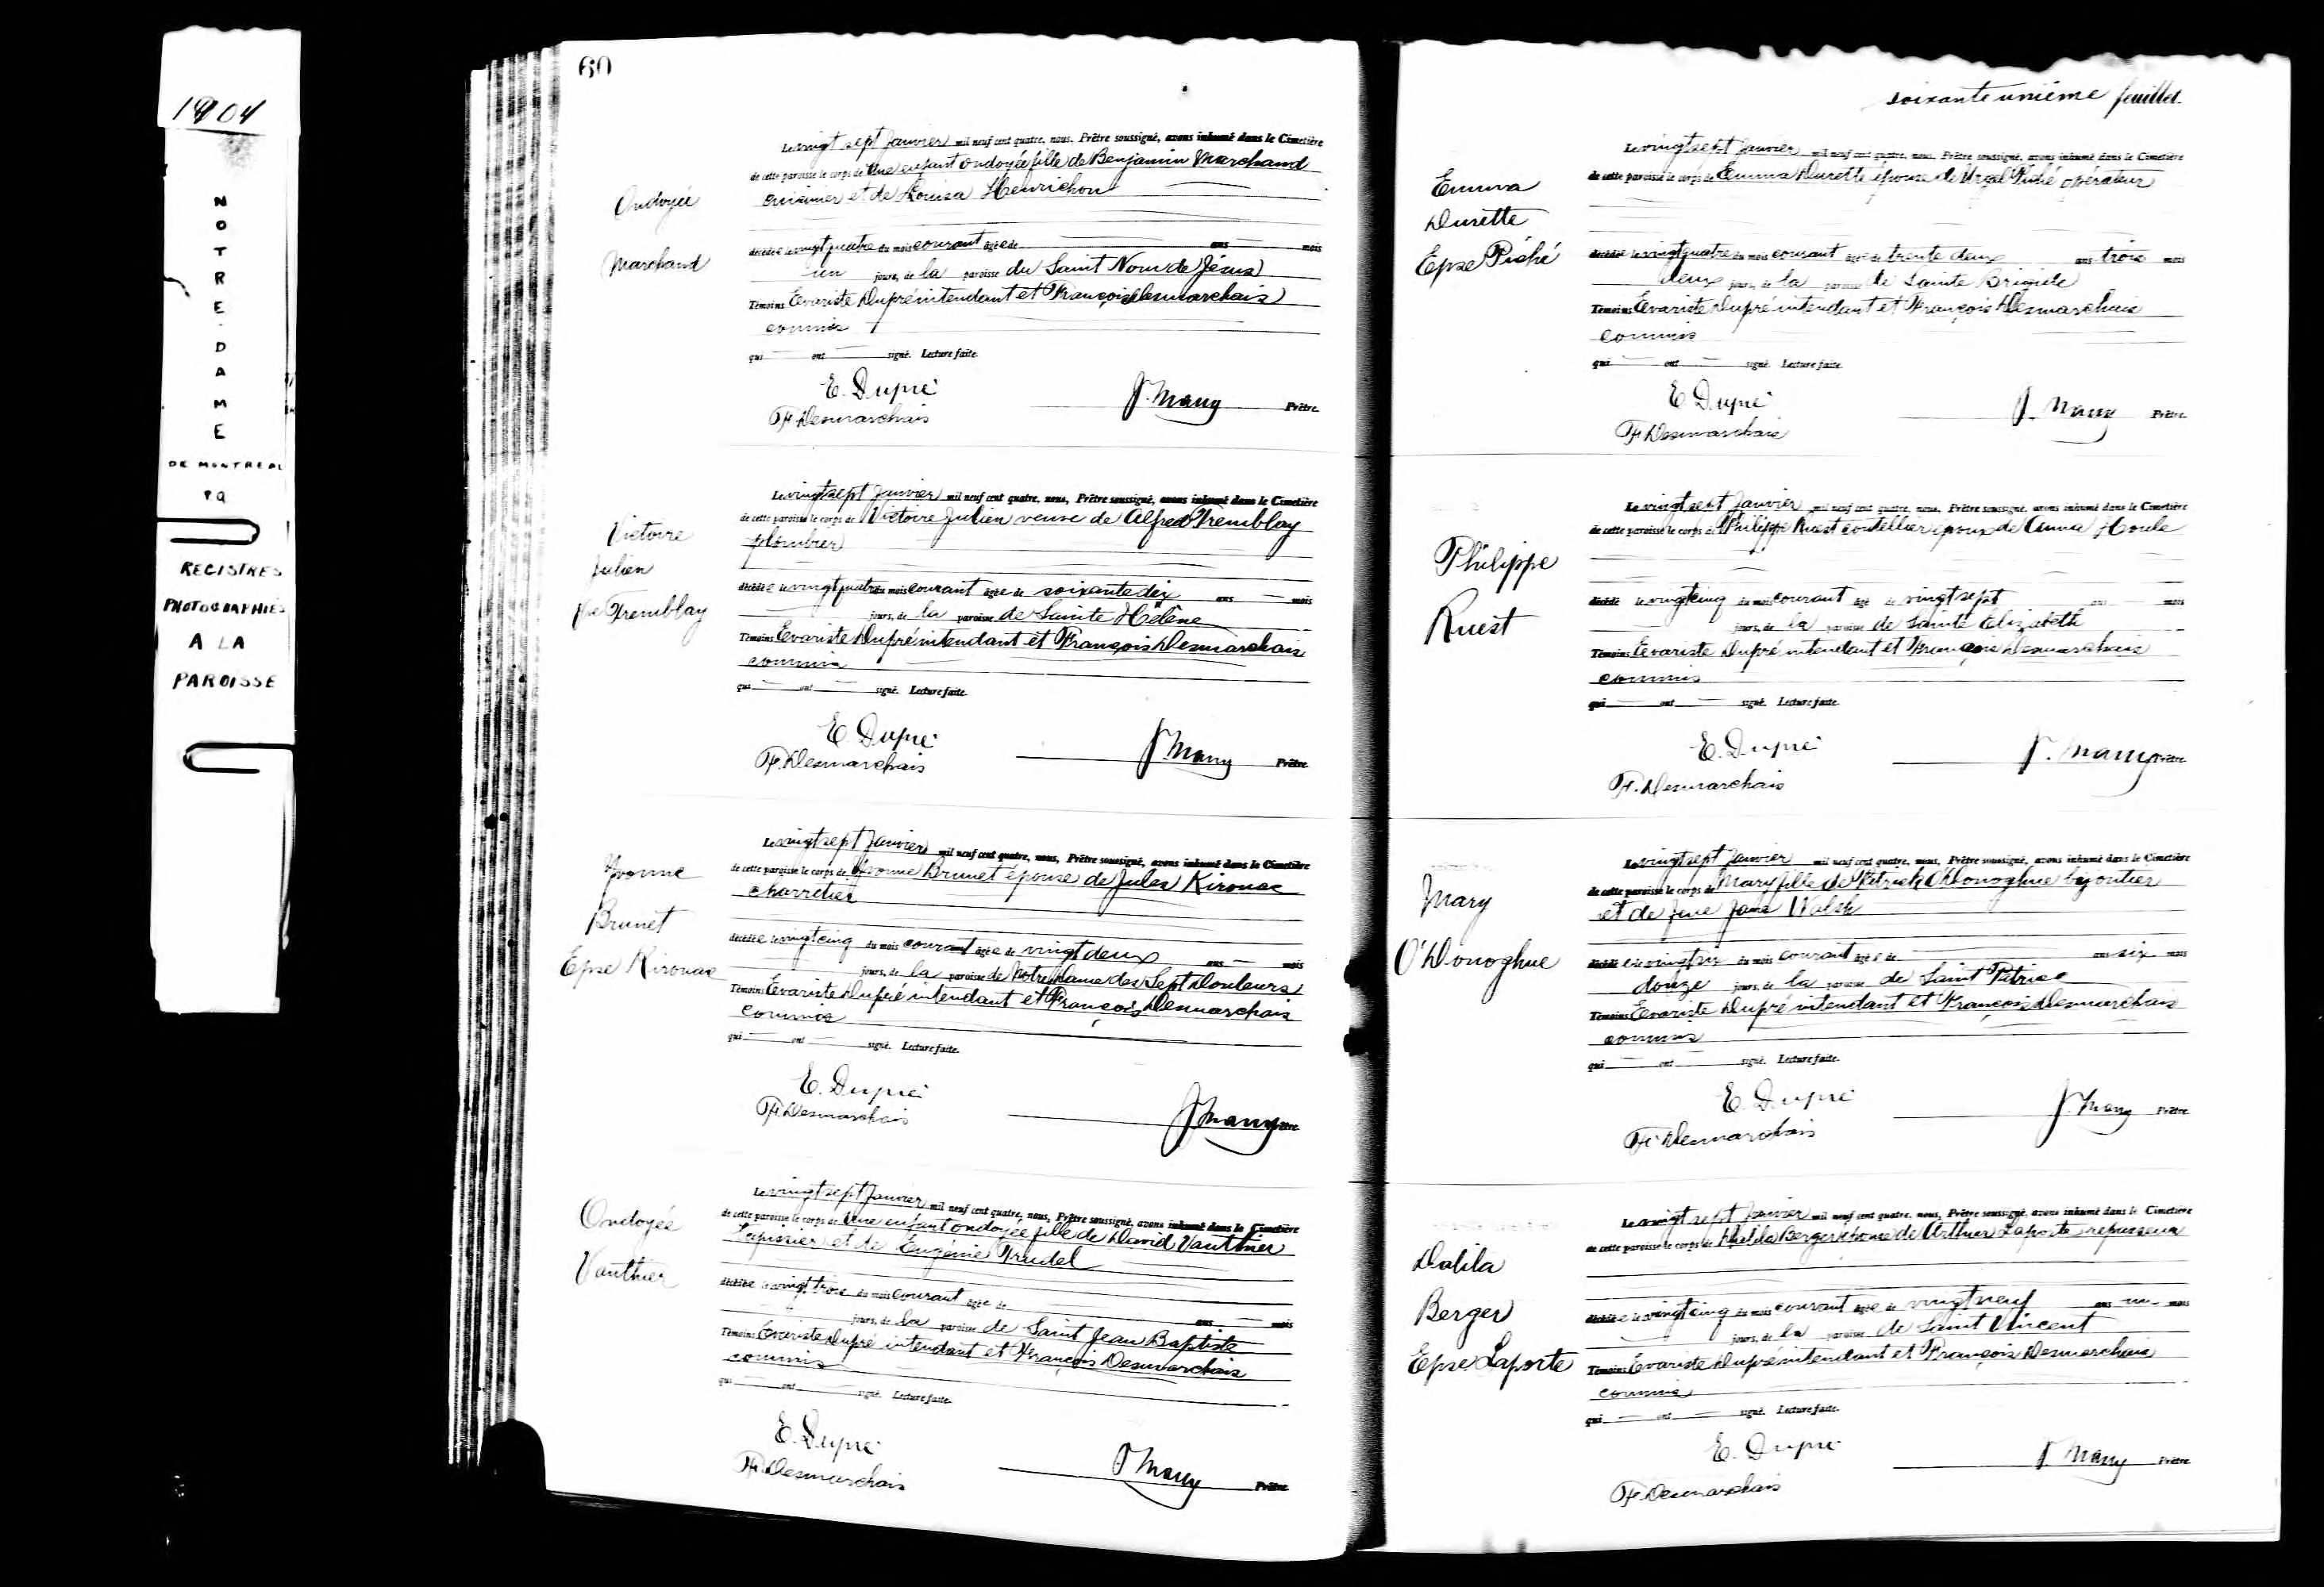 1904
NOTRE-DAME
DE MONTREAL
PQ
REGISTRES
PHOTOGRAPHIÉS
A LA
PAROISSE
60
Ondoyée
Marchand
Le vingt sept Janvier mil neuf cent quatre, nous, Prêtre soussigné, avons inhumé dans le Cimetière
de cette paroisse le corps de Une enfant ondoyée fille de Benjamin Marchand
cuisinier et de Louisa Henrichon
décédée le vingt quatre du mois courant âgée de ans mois
un jours, de la paroisse du Saint Nom de Jésus
Témoins Evariste Dupré intendant et François Desmarchais
commis
qui ont signé. Lecture faite.
E. Dupré
F. Desmarchais
J. Many Prêtre.
Victoire
Julien
Ve Tremblay
Le vingt sept Janvier mil neuf cent quatre, nous, Prêtre soussigné, avons inhumé dans le Cimetière
de cette paroisse le corps de Victoire Julien veuve de Alfred Tremblay
plombier
décédée le vingt quatre du mois courant âgée de soixante dix ans mois
jours, de la paroisse de Sainte Hélène
Témoins Evariste Dupré intendant et François Desmarchais
commis
qui ont signé. Lecture faite.
E. Dupré
F. Desmarchais
J. Many Prêtre
Yvonne
Brunet
Epse Kirouac
Le vingt sept Janvier mil neuf cent quatre, nous, Prêtre soussigné, avons inhumé dans le Cimetière
de cette paroisse le corps de Yvonne Brunet épouse de Jules Kirouac
charretier
décédée le vingt cinq du mois courant âgée de vingt deux ans mois
jours, de la paroisse de Notre Dame des Sept Douleurs
Témoins Evariste Dupré intendant et François Desmarchais
commis
qui ont signé. Lecture faite.
E. Dupré
F. Desmarchais
J. Many Prêtre
Ondoyée
Vauthier
Le vingt sept Janvier mil neuf cent quatre, nous, Prêtre soussigné, avons inhumé dans le Cimetière
de cette paroisse le corps de Une enfant ondoyée fille de David Vauthier
Tapissier et de Eugénie Trudel
décédée le vingt trois du mois courant âgée de ans mois
jours, de la paroisse de Saint Jean Baptiste
Témoins Evariste Dupré intendant et François Desmarchais
commis
qui ont signé. Lecture faite.
E. Dupré
F. Desmarchais
J. Many Prêtre
soixante unième feuillet.
Emma
Durette
Epse Piché
Le vingt sept Janvier mil neuf cent quatre, nous, Prêtre soussigné, avons inhumé dans le Cimetière
de cette paroisse le corps de Emma Durette épouse de Urgel Piché opérateur
décédée le vingt quatre du mois courant âgée de trente deux ans trois mois
deux jours, de la paroisse de Sainte Brigide
Témoins Evariste Dupré intendant et François Desmarchais
commis
qui ont signé. Lecture faite.
E. Dupré
F. Desmarchais
J. Many Prêtre
Philippe
Ruest
Le vingt sept Janvier mil neuf cent quatre, nous, Prêtre soussigné, avons inhumé dans le Cimetière
de cette paroisse le corps de Philippe Ruest coutellier époux de Anna Houle
décédé le vingt cinq du mois courant âgé de vingt sept ans mois
jours, de la paroisse de Sainte Elizabeth
Témoins Evariste Dupré intendant et François Desmarchais
commis
qui ont signé. Lecture faite.
E. Dupré
F. Desmarchais
J. Many Prêtre
Mary
O'Donoghue
Le vingt sept Janvier mil neuf cent quatre, nous, Prêtre soussigné, avons inhumé dans le Cimetière
de cette paroisse le corps de Mary fille de Patrick O'Donoghue bijoutier
et de feue Jane Walsh
décédée le vingt six du mois courant âgée de ans six mois
douze jours, de la paroisse de Saint Patrice
Témoins Evariste Dupré intendant et François Desmarchais
commis
qui ont signé. Lecture faite.
E. Dupré
F. Desmarchais
J. Many Prêtre
Dalila
Berger
Epse Laporte
Le vingt sept Janvier mil neuf cent quatre, nous, Prêtre soussigné, avons inhumé dans le Cimetière
de cette paroisse le corps de Dalila Berger épouse de Arthur Laporte repasseur
décédée le vingt cinq du mois courant âgée de vingt neuf ans un mois
jours, de la paroisse de Saint Vincent
Témoins Evariste Dupré intendant et François Desmarchais
commis
qui ont signé. Lecture faite.
E. Dupré
F. Desmarchais
J. Many Prêtre